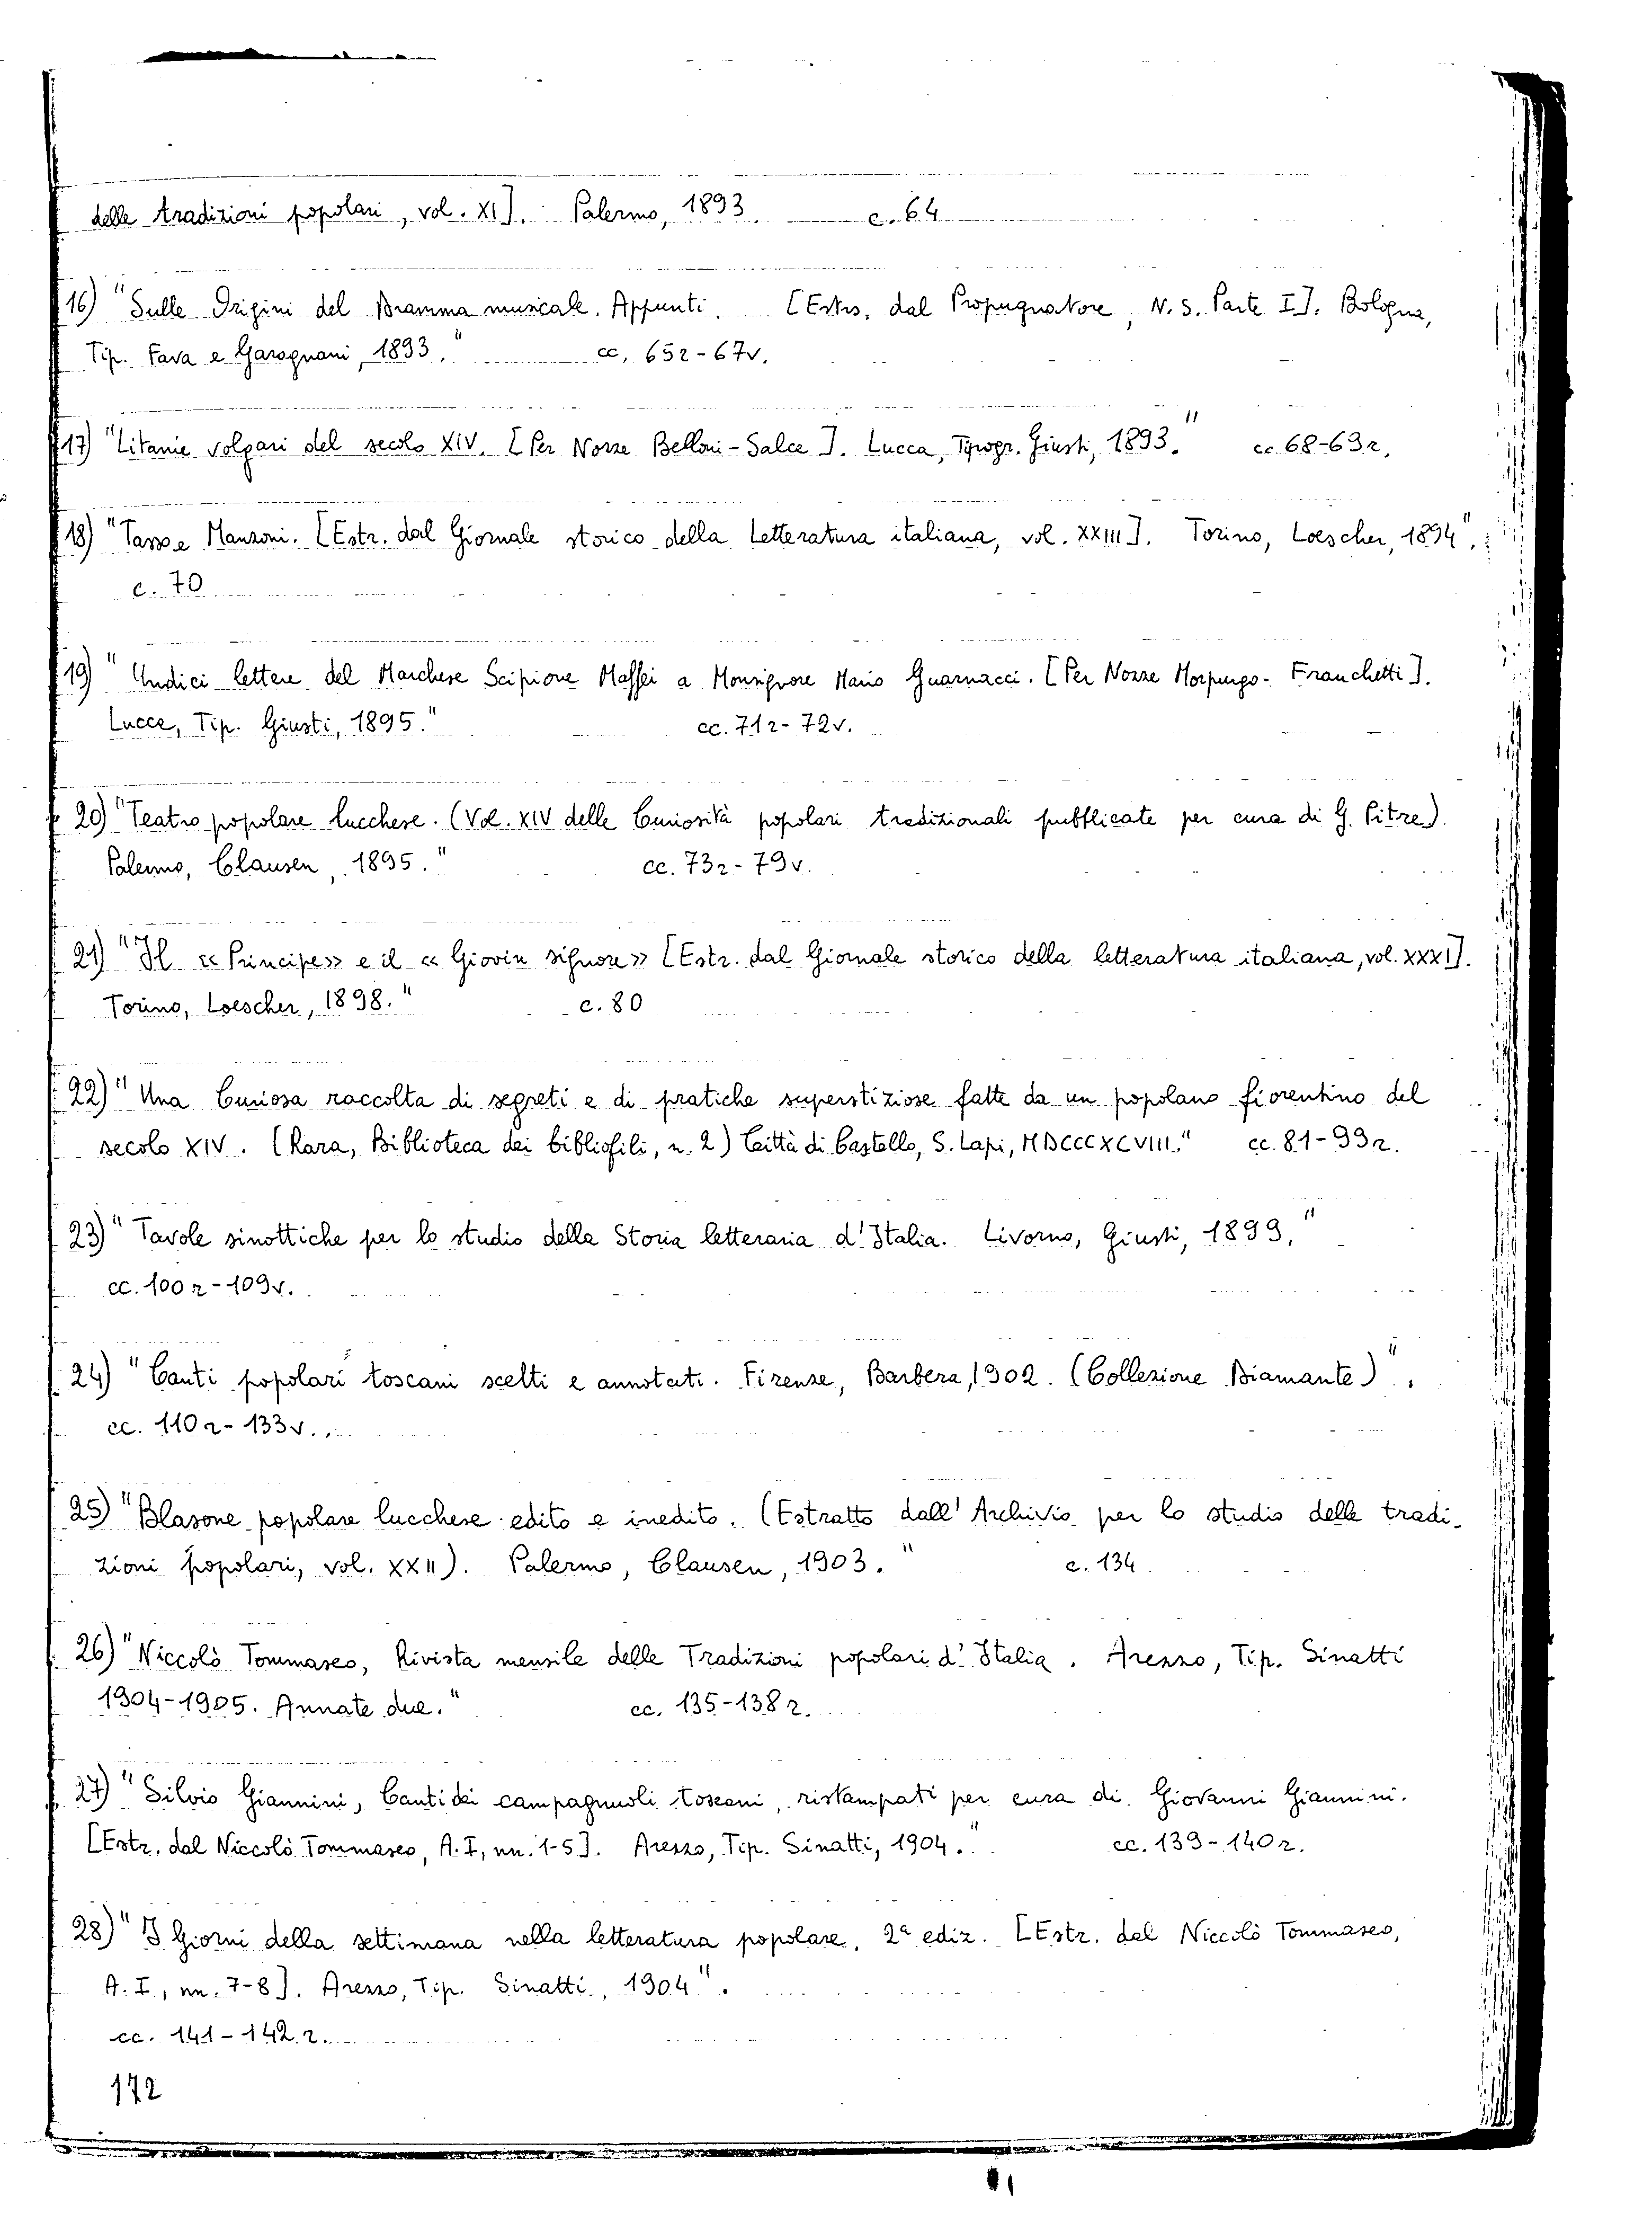 delle tradizioni popolari, vol. XI]. Palermo, 1893. c. 64
16) "Sulle Origini del Dramma musicale. Appunti. [Estr. dal Propugnatore, N. S. Parte I]. Bologna,
Tip. Fava e Garagnani, 1893." cc. 65r-67v.
17) "Litanie volgari del secolo XIV. [Per Nozze Belloni-Salce]. Lucca, Tipogr. Giusti, 1893." cc. 68-69r.
18) "Tasso e Manzoni. [Estr. dal Giornale storico della Letteratura italiana, vol. XXIII]. Torino, Loescher, 1894".
c. 70
19) "Undici lettere del Marchese Scipione Maffei a Monsignore Mario Guarnacci. [Per Nozze Morpurgo-Franchetti].
Lucca, Tip. Giusti, 1895." cc. 71r-72v.
20) "Teatro popolare lucchese. (Vol. XIV delle Curiosità popolari tradizionali pubblicate per cura di G. Pitrè).
Palermo, Clausen, 1895." cc. 73r-79v.
21) "Il «Principe» e il «Giovin signore» [Estr. dal Giornale storico della letteratura italiana, vol. XXXI].
Torino, Loescher, 1898." c. 80
22) "Una Curiosa raccolta di segreti e di pratiche superstiziose fatte da un popolano fiorentino del
secolo XIV. (Rara, Biblioteca dei bibliofili, n. 2) Città di Castello, S. Lapi, MDCCCXCVIII." cc. 81-99r.
23) "Tavole sinottiche per lo studio della Storia letteraria d'Italia. Livorno, Giusti, 1899."
cc. 100r-109v.
24) "Canti popolari toscani scelti e annotati. Firenze, Barbera, 1902. (Collezione Diamante)".
cc. 110r-133v.
25) "Blasone popolare lucchese edito e inedito. (Estratto dall'Archivio per lo studio delle tradi-
zioni popolari, vol. XXII). Palermo, Clausen, 1903." c. 134
26) "Niccolò Tommaseo, Rivista mensile delle Tradizioni popolari d'Italia. Arezzo, Tip. Sinatti
1904-1905. Annate due." cc. 135-138r.
27) "Silvio Giannini, Canti dei campagnuoli toscani, ristampati per cura di Giovanni Giannini.
[Estr. dal Niccolò Tommaseo, A. I, nn. 1-5]. Arezzo, Tip. Sinatti, 1904." cc. 139-140r.
28) "I Giorni della settimana nella letteratura popolare, 2ª ediz. [Estr. dal Niccolò Tommaseo,
A. I, nn. 7-8]. Arezzo, Tip. Sinatti, 1904".
cc. 141-142r.
172